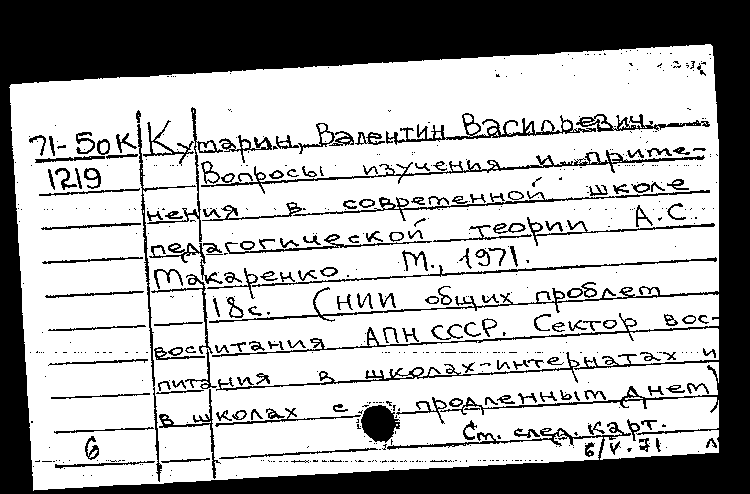 71-50к Кутарин, Валентин Васильевич.
1219 Вопросы изучения и приме-
нения в современной школе
педагогической теории А.С.
Макаренко. М., 1971.
18с. (НИИ общих проблем
воспитания АПН СССР. Сектор вос-
питания в школах-интернатах и
в школах с продленным днем)
См. след. карт.
6 6/V.71